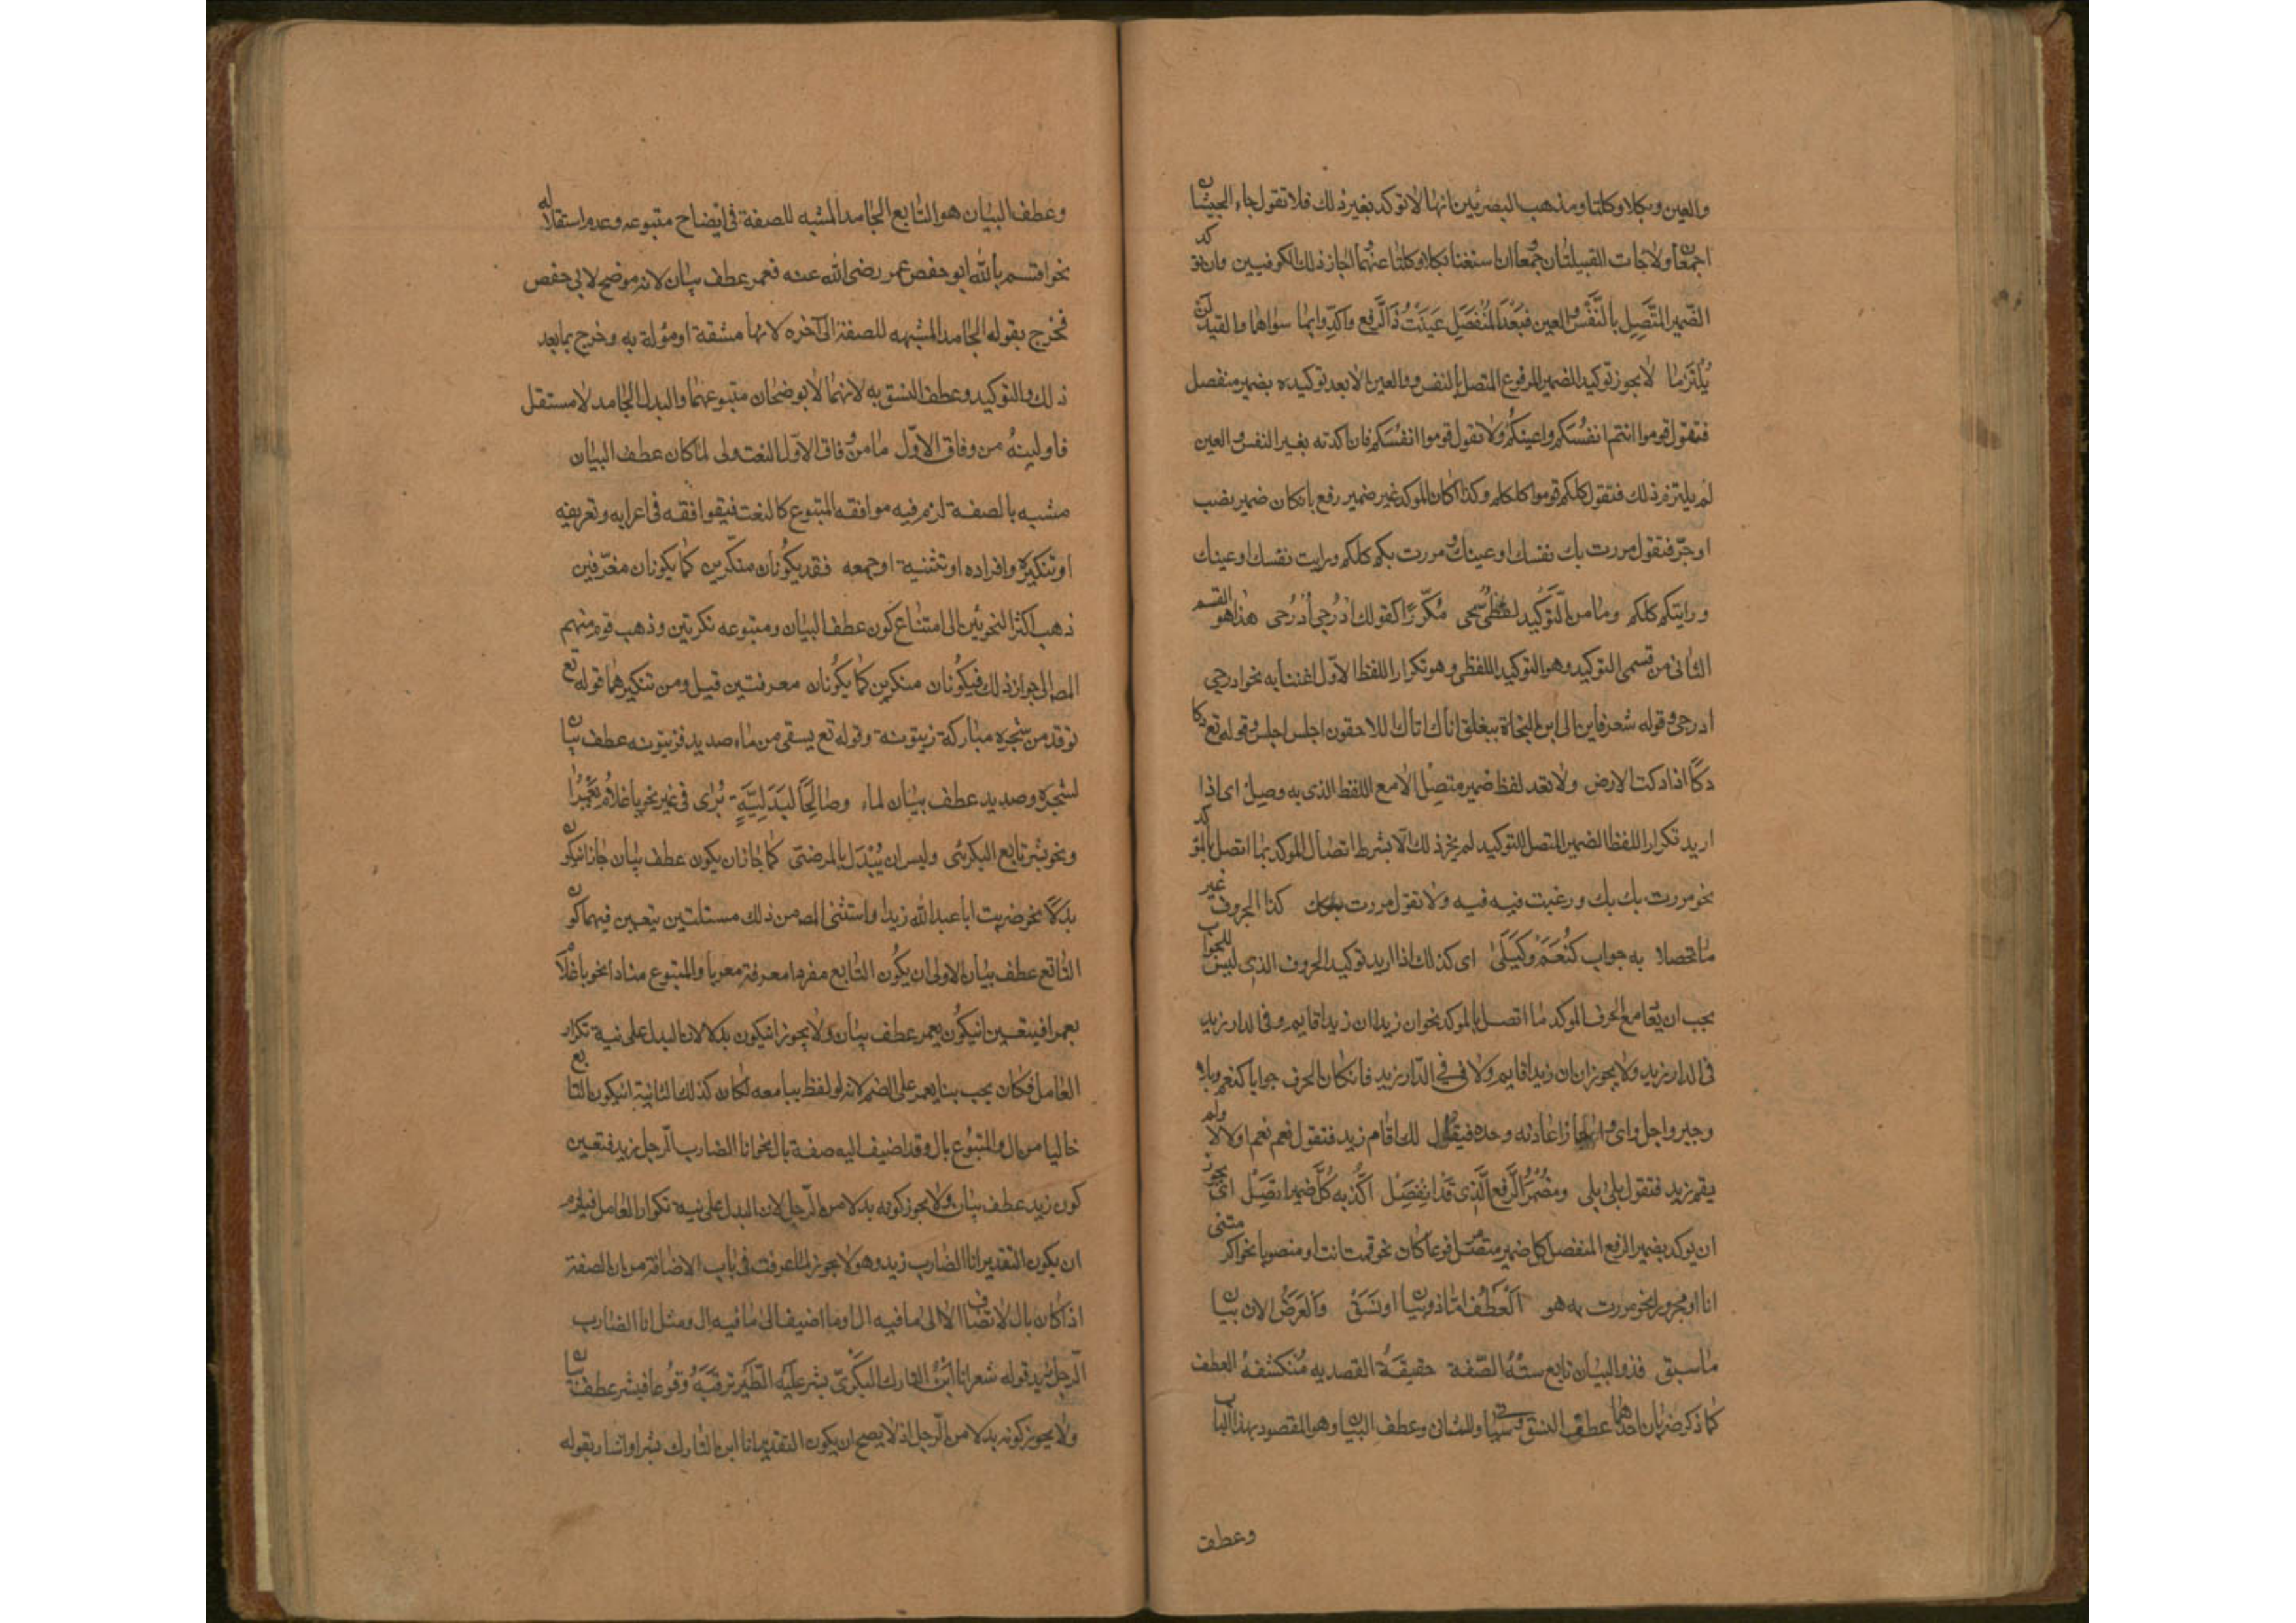 والعين وبكلا وكلتا ومذهب البصريين انهما لا توكد بغير ذلك فلا تقول جاء الجيشان
اجمعان ولا جات القبيلتان جمعاان استغنا بكلا وكلتا عنهما واجاز ذلك الكوفيين وان توكد
الضّمير المتّصِل بالنّفس والعين فبَعْدَ المُنْفَصِل عَنَيْتُ ذَا الرّفع واكّدوا بما سواهما والقيد لن
يُلْتَزما لا يجوز توكيد الضمير المرفوع المتصل بالنفس والعين الا بعد توكيده بضمير منفصل
فتقول قوموا انتم انفسكم واعينكم ولا تقول قوموا انفسكم فان اكدته بغير النفس والعين
لم يلتزم ذلك فتقول كلكم قوموا كلكم وكذا اكان الموكد غير ضمير رفع بانكان ضمير نصب
اوجرّ فتقول مررت بك نفسك او عينك ومررت بكم كلكم ورايت نفسك او عينك
ورايتكم كلكم وما من التّوكيد لفظيّ يجى مكرّرًا كقولك ادْرُجِي ادْرُجِى هذا هو القسم
الثانى من قسمى التوكيد وهو التوكيد اللفظى وهو تكرار اللفظ الاوّل اغتنا به نحو ادرجى
ادرجى وقوله شعر فاين الى اين النجاة ببغلتى اتاك اتاك اللاحقون اجلس اجلس وقوله تع دكا
دكًا اذا دكت الارض ولا تعد لفظ ضمير متصِل الا مع اللفظ الذى به وصل اى اذا
اريد تكرار اللفظ الضمير المتصل للتوكيد لم يجز ذلك الّا بشرط اتصال الموكد بما اتصل بالموكد
نحو مررت بك بك ورغبت فيه فيه ولا تقول مررت بك كذا الحروف غير
ما تحصلا به جواب كنَعَمْ وكَبَلَى اى كذلك اذا اريد توكيد الحروف الذى ليس للجواب
يجب ان يعا مع الحرف الموكد ما اتصل بالموكد نحو ان زيدا ان زيدا قايم وفى الدار زيد
فى الدار زيد ولا يجوز ان ان زيدا قايم ولا فى فى الدّار زيد فانكان الحرف جوابا كنعم وبلى
وجير واجل واى ولا جاز اعادته وحده فيقول لك اقام زيد فتقول نعم نعم او لا لا ولم
يقم زيد فتقول بلى بلى ومضمر الرّفع الّذى قد انفصِل اكّد به كلّ ضمير اتّصل اى يجوز
ان يوكد بضمير الرفع المنفصل كل ضمير متصل مرفوعا كان نحو قمت انت او منصوبا نحو اكرمتنى
انا او مجرورا نحو مررت به هو العَطْف امّا ذو بيان او نَسَقْ والغرض الان بيان
ما سبق فذو البيان تابع شبه الصّفة حقيقة القصد به منكشفة العطف
كما ذكر ضربان احدهما عطف النسق وسياتى والثان وعطف البيان وهو المقصود بهذا الباب
وعطف
وعطف البيان هو التابع الجامد المشبه للصفة فى ايضاح متبوعه وعدم استقلاله
نحو اقسم بالله ابو حفص عمر رضى الله عنه فعمر عطف بيان لانه موضح لابى حفص
فخرج بقوله الجامد المشبهه للصفة الى آخره لانها مشقة او مؤلة به وخرج بما بعد
ذلك والتوكيد وعطف النسق به لانهما لا يوضحان متبوعهما والبدل الجامد لا مستقل
فاولينهُ من وفاق الاوّل ما من وفاق الاوّل النعت ولى لما كان عطف البيان
مشبه بالصفة لزم فيه موافقه المتبوع كالنعت فيوافقه فى اعرابه وتعريفه
او تنكيره وافراده او تثنية او جمعه فقد يكونان منكّرين كما يكونان معرّفين
ذهب اكثر النحويّين الى امتناع كون عطف البيان ومتبوعه نكرتين وذهب قوم منهم
المص الى جواز ذلك فيكونان منكرين كما يكونان معرفتين قيل ومن تنكيرهما قوله تع
توقد من شجره مباركة زيتونة وقوله تع يسقى من ماء صديد فزيتونه عطف بيان
لشجره وصديد عطف بيان لماء وصالحًا لبدليّةٍ يُرَى فى غير نحو يا غلام يَعْمُرا
ونحو بشر تابع البكرىّ وليس ان يُبْدَل بالمرضىّ كما جاز ان يكون عطف بيان جاز انيكون
بدلا نحو ضربت ابا عبدالله زيدا واستثنى المص من ذلك مسئلتين يتعين فيهما كون
التابع عطف بيان الاولى ان يكون التابع مفردا معرفة معربا والمتبوع منادا نحو يا غلام
يعمرا فيتعين انيكون يعمر عطف بيان ولا يجوز انيكون بدلا لان البدل على نية تكرار
العامل فكان يجب بنا يعمر على الضم لانه لو لفظ بيا معه لكان كذلك الثانية انيكون التابع
خاليا من ال والمتبوع بال وقد اضيف اليه صفة بال نحو انا الضارب الرّجل زيد فتعين
كون زيد عطف بيان ولا يجوز كونه بدلا من الرّجل لان البدل على نية تكرار العامل فيلزم
ان يكون التقدير انا الضارب زيد وهو لا يجوز لما عرفت فى باب الاضافة من ان الصفة
اذا كان بال لا تضاف الا الى ما فيه ال او ما اضيف الى ما فيه ال ومثل انا الضارب
الرّجل زيد قوله شعر انا ابن التارك البكرىّ بشر عليه الطّير ترقبه وقوعا فبشر عطف بيان
ولا يجوز كونه بدلا من الرّجل اذ لا يصح ان يكون التقدير انا ابن التارك بشر اواشار بقوله